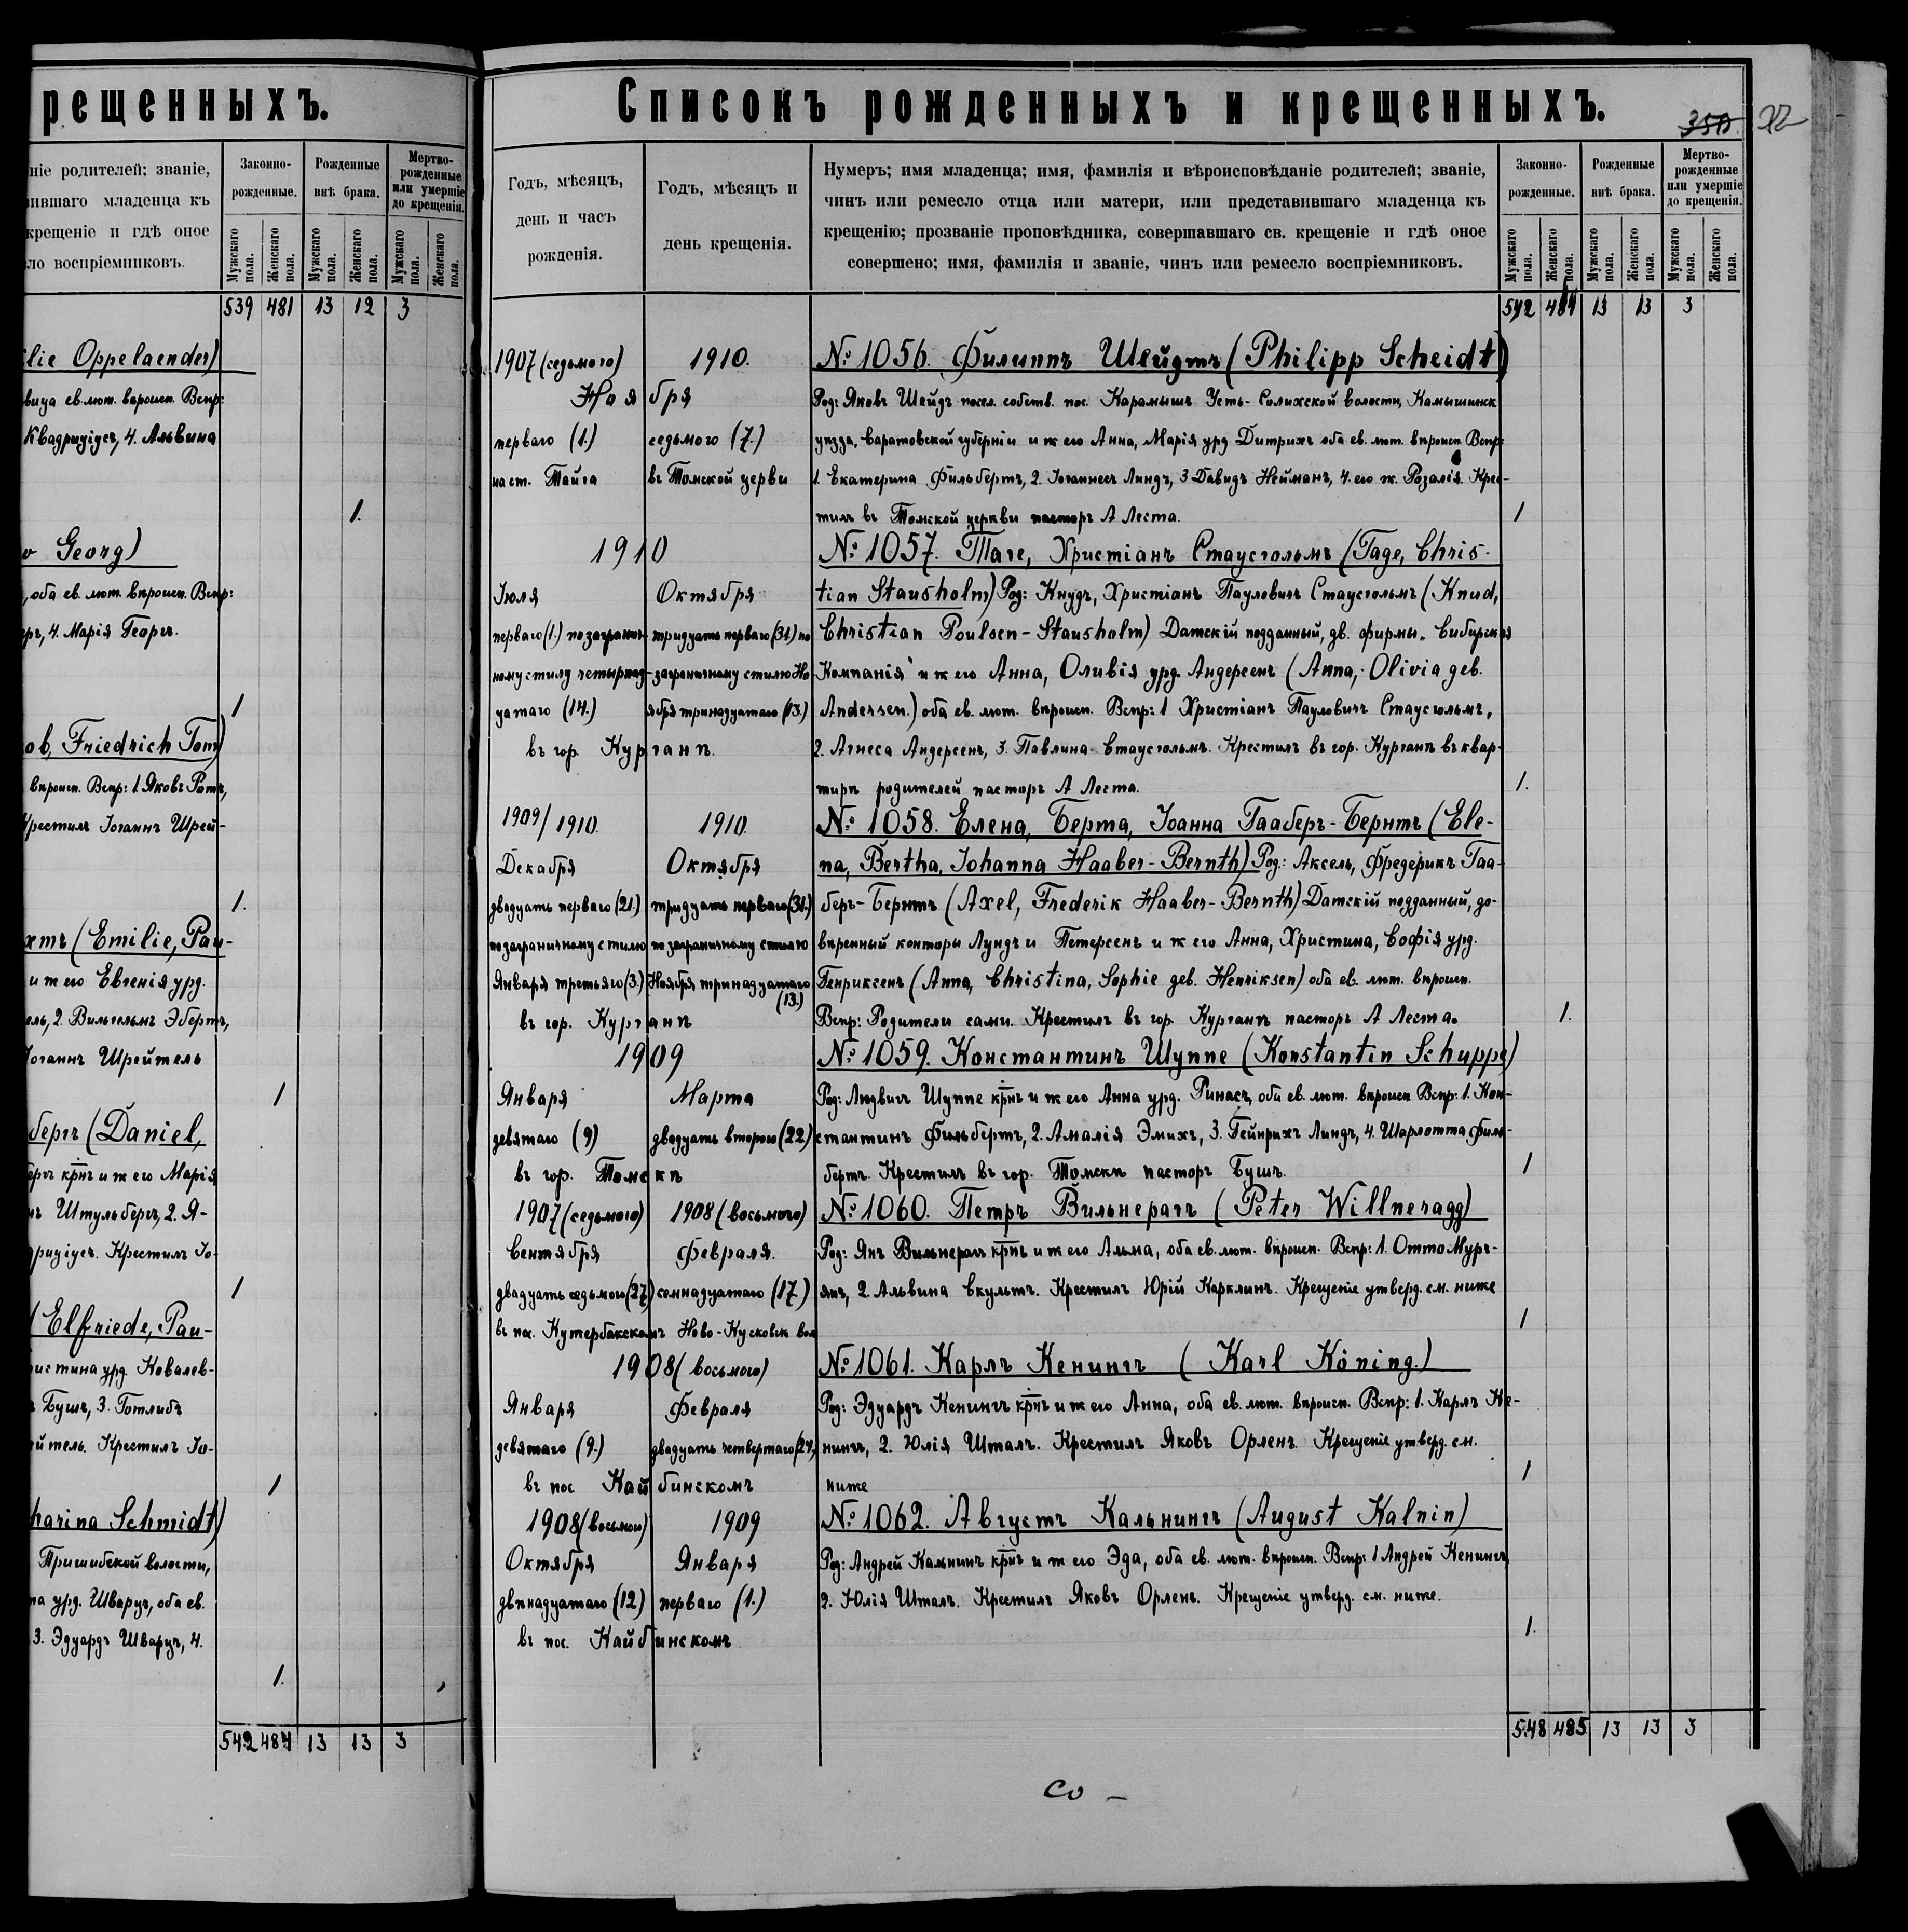 рещенныхъ.
ніе родителей; званіе,
ившаго младенца къ
крещеніе и гдѣ оное
ло воспріемниковъ.
Законно-
рожденные.
Рожденные
внѣ брака.
Мертво-
рожденные
или умершіе
до крещенія.
Мужскаго пола.
Женскаго пола.
Мужскаго пола.
Женскаго пола.
Мужскаго пола.
Женскаго пола.
539 481 13 12 3
lie Oppelaender)
вица ев. лют. вѣроисп. Вспр:
Квадрицiусъ, 4. Альвина
1.
Georg)
, оба ев. лют. вѣроисп. Вспр:
4. Марія Георгъ.
1
ob, Friedrich Tom)
вѣроисп. Вспр: 1. Яковъ Ротъ,
Крестилъ Іоганнъ Шрей-
1.
(Emilie, Pau-
и ж его Евгенія урд.
2. Вильгельмъ Эбертъ,
Іоганнъ Шрейтель
1
бергъ (Daniel,
крнъ и ж его Марія
Штульбергъ, 2. Я-
Крестилъ Іо-
1
(Elfriede, Pau-
истина урд. Ковалев-
Бушъ, 3. Готлибъ
йтель. Крестилъ Іо-
1
harina Schmidt)
Пришибской волости,
на урд. Шварцъ, оба ев.
3. Эдуардъ Шварцъ, 4.
1.
542 484 13 13 3
Списокъ рожденныхъ и крещенныхъ.
350.
Годъ, мѣсяцъ,
день и часъ
рожденія.
Годъ, мѣсяцъ и
день крещенія.
Нумеръ; имя младенца; имя, фамилія и вѣроисповѣданіе родителей; званіе,
чинъ или ремесло отца или матери, или представившаго младенца къ
крещенію; прозваніе проповѣдника, совершавшаго св. крещеніе и гдѣ оное
совершено; имя, фамилія и званіе, чинъ или ремесло воспріемниковъ.
Законно-
рожденные.
Рожденные
внѣ брака.
Мертво-
рожденные
или умершіе
до крещенія.
Мужскаго пола.
Женскаго пола.
Мужскаго пола.
Женскаго пола.
Мужскаго пола.
Женскаго пола.
542 484 13 13 3
1907 (седьмого) 1910. № 1056. Филиппъ Шейдтъ (Philipp Scheidt)
Ноября Род: Яковъ Шейдъ посел. собств. пос. Карамышъ Усть-Солихской волости, Камышинск
перваго (1.) седьмого (7.) уѣзда, Саратовской губерніи и ж его Анна, Марія урд Дитрихъ оба ев. лют. вѣроисп. Вспр:
на ст. Тайга въ Томской церкви 1. Екатерина Фильбертъ, 2. Іоганнесъ Линдъ, 3 Давидъ Нейманъ, 4. его ж. Розалія. Крес-
тилъ въ Томской церкви пасторъ А Леста. 1
1910 № 1057. Таге, Христіанъ Стаусгольмъ (Tage, Chris-
Іюля Октября tian Stausholm) Род: Кнудъ, Христіанъ Пауловичъ Стаусгольмъ (Knud,
перваго (1.) по загранич- тридцать перваго (31.) по Christian Poulsen-Stausholm) Датскій подданный, дв. фирмы „Сибирская
ному стилу четырнад- заграничному стилю Но- Компанія" и ж его Анна, Оливія урд. Андерсенъ (Anna, Olivia geb.
цатаго (14.) ября тринадцатаго (13.) Andersen.) оба ев. лют. вѣроисп. Вспр: 1 Христіанъ Пауловичъ Стаусгольмъ,
въ гор. Курганѣ. 2. Агнеса Андерсенъ, 3. Павлина Стаусгольмъ. Крестилъ въ гор. Курганѣ въ квар-
тирѣ родителей пасторъ А Леста. 1.
1909/1910. 1910. № 1058. Елена, Берта, Іоанна Гааберъ-Бернтъ (Ele-
Декабря Октября na, Bertha, Johanna Haaber-Bernth) Род: Аксель, Фредерикъ Гаа-
двадцать перваго (21.) тридцать перваго (31.) беръ-Бернтъ (Axel, Frederik Haaber-Bernth) Датскій подданный, до-
по заграничному стилю по заграничному стилю вѣренный конторы Лундъ и Петерсенъ и ж его Анна, Христина, Софія урд.
Января третьяго (3.) Ноября тринадцатаго (13.) Генриксенъ (Anna, Christina, Sophie geb. Henriksen) оба ев. лют. вѣроисп.
въ гор. Курганѣ Вспр: Родители сами. Крестилъ въ гор. Курганѣ пасторъ А Леста. 1.
1909 № 1059. Константинъ Шуппе (Konstantin Schuppe)
Января Марта Род: Людвигъ Шуппе крнъ и ж его Анна урд. Ринасъ, оба ев. лют. вѣроисп Вспр: 1. Кон-
девятаго (9) двадцать второго (22) стантинъ Фильбертъ, 2. Амалія Эмихъ, 3. Гейнрихъ Линдъ, 4. Шарлотта Филь-
въ гор. Томскѣ бертъ. Крестилъ въ гор. Томскѣ пасторъ Бушъ. 1
1907 (седьмого) 1908 (восьмого) № 1060. Петръ Вильнерагъ (Peter Willneragg)
Сентября Февраля. Род: Янъ Вильнерагъ крнъ и ж его Альма, оба ев. лют. вѣроисп. Вспр: 1. Отто Мур-
двадцать седьмого (27) семнадцатаго (17.) янъ, 2. Альвина Скультъ. Крестилъ Юрій Карклинъ. Крещеніе утверд. см. ниже
въ пос. Кутербакскомъ Ново-Кусковск вол 1
1908 (восьмого) № 1061. Карлъ Кенингъ (Karl Köning.)
Января Февраля Род: Эдуардъ Кенингъ крнъ и ж его Анна, оба ев. лют. вѣроисп. Вспр: 1. Карлъ Ке-
девятаго (9.) двадцать четвертаго (24.) нингъ, 2. Юлія Шталъ. Крестилъ Яковъ Орленъ. Крещеніе утверд. см.
въ пос Кайбинскомъ ниже 1
1908 (восьмого) 1909 № 1062. Августъ Кальнингъ (August Kalnin)
Октября Января Род: Андрей Кальнинъ крнъ и ж его Эда, оба ев. лют. вѣроисп. Вспр: 1 Андрей Кенингъ,
двѣнадцатаго (12) перваго (1.) 2. Юлія Шталъ. Крестилъ Яковъ Орленъ. Крещеніе утверд. см. ниже.
въ пос. Кайбинскомъ 1.
548 485 13 13 3